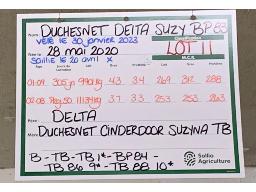 Nom DUCHESNET DELTA SUZY BP 83
Vêlé le 30 janvier 2023
Née le 28 mai 2020
LOT 11
Saillie le 20 avril x
M.C.R.
01-09 305jrs 9901kg 4.3 3.4 269 312 288
02-08 11134kg 3.7 3.3 253 253 263
Père DELTA
Mère DUCHESNET CINDERDOOR SUZYNA TB
B - TB - TB 1* - BP 84 -
TB 86 9* - TB 88 10*
Sollio
Agriculture